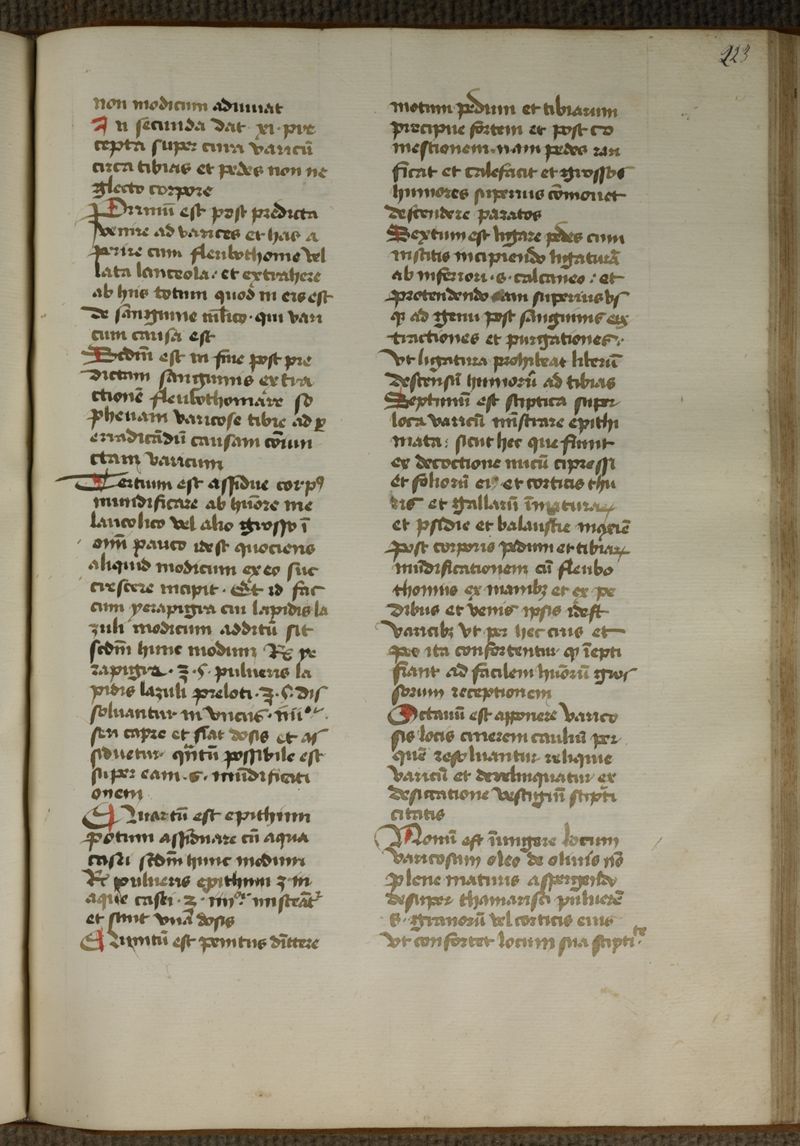 223
non modicum adiuuat
In secunda dat xi. pre
cepta super cura varicū
circa tibias et pedes non ne
glecto corpore
Primū est post predicta
venire ad varices et has a
perire cum fleubothomo vel
lata lanceola: et extrahere
ab hiis totum quod in eis est
de sanguine mēlico. qui vari
cum causa est
Secdm est in fine post pre
dictam sanguinis extra
ctionē fleubothomare so
phenam varicose tibie ad p
erradicādū causam coniun
ctam varicum
Tercium est assidue corpꝰ
mundificare ab humore me
lancolico vel alio grosso ī
omī pauco idest quociens
aliquid modicum ex eo suc
crescere incipit. Et id fac
cum yerapigra cui lapidis la
zuli modicum additū sit
secdm hunc modum Rx ye
rapigra. ʒ. s. pulueris la
pidis lazuli preloti. ʒ. s. dis
soluantur in vnciis. iiii.
seri capre et fiat dosis et as
siduetur qntū possibile est
super eam. s. mūdificati
onem
Quartū est epithimi
potum assiduare cū aqua
casei secdm hunc modum
Rx pulueris epithimi ʒ iii
aque casei. ʒ. iiii. misceātʳ
et sint vna dosis
Quintū est penitus dīttere
motum pedum et tibiarum
precipue fortem et post co
mestionem. nam pedes ran
ficat et calefacit et grossos
humores superius cōmouet
descendere paratos
Sextum est ligare pedes cum
institis incipiendo ligaturā
ab inferiori. s. calcaneo: et
protendendo eam superius vs
qꝫ ad genu post sanguinis ex
tractiones et purgationes.
Vt ligatura prohibeat liberū
descensū humorū ad tibias
Septimū est stiptica super
loca varicū mīstrare epithi
mata: sicut hec que fiunt
ex decoctione nucū cipressi
et foliorū eiꝰ et corticis thu
ris et gallarū īmatura
et psidie et balaustie maxīē
post corporis pedum et tibiaꝝ
mūdificationem cū fleubo
thomiis ex manibꝫ et ex pe
dibus et venis ipsis idest
varicibꝫ vt per hec crus et
pes ita confortentur qꝫ īepti
fiant ad facilem humorū gros
sorum receptionem
Octauū est apponere varico
sis locis cinerem cauliū per
quē resoluantur reliquie
varicū et derelinquatur ex
desiccatione vestigiū stipti
citatis
Nonū est īungere locum
varicosum oleo de oliuis nō
plene maturis aspergendo
desuper thamarisci puluerē
s. granorū vel corticis eius
vt confortet locum sua stipti.te